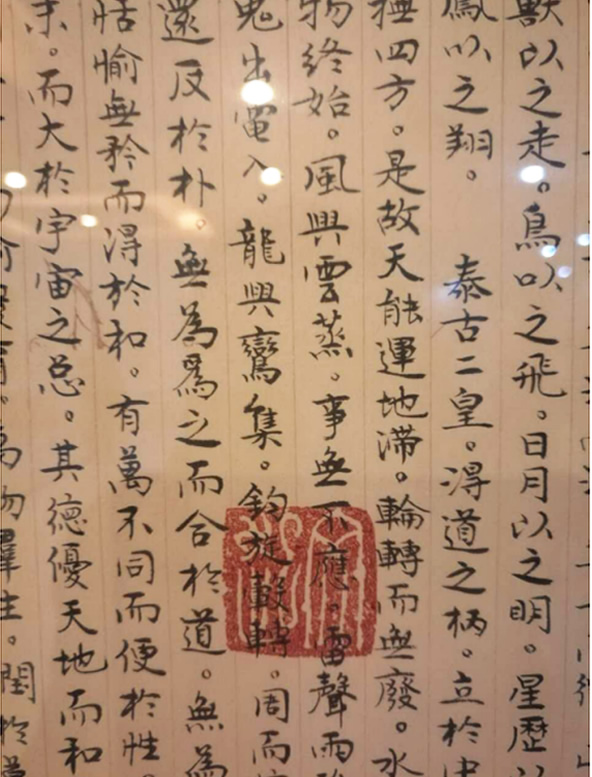 獸以之走。鳥以之飛。日月以之明。星歷以
鳳以之翔。 泰古二皇。淂道之柄。立於中
四方。是故天能運地滯。輪轉而無廢。水
物終始。風興雲蒸。事無不應。雷聲雨
鬼出電入。龍興鸞集。鈞旋轂轉。周而
還反於朴。無為爲之而合於道。無為
恬愉無矜而淂於和。有萬不同而便於性。
末。而大於宇宙之总。其德優天地而和